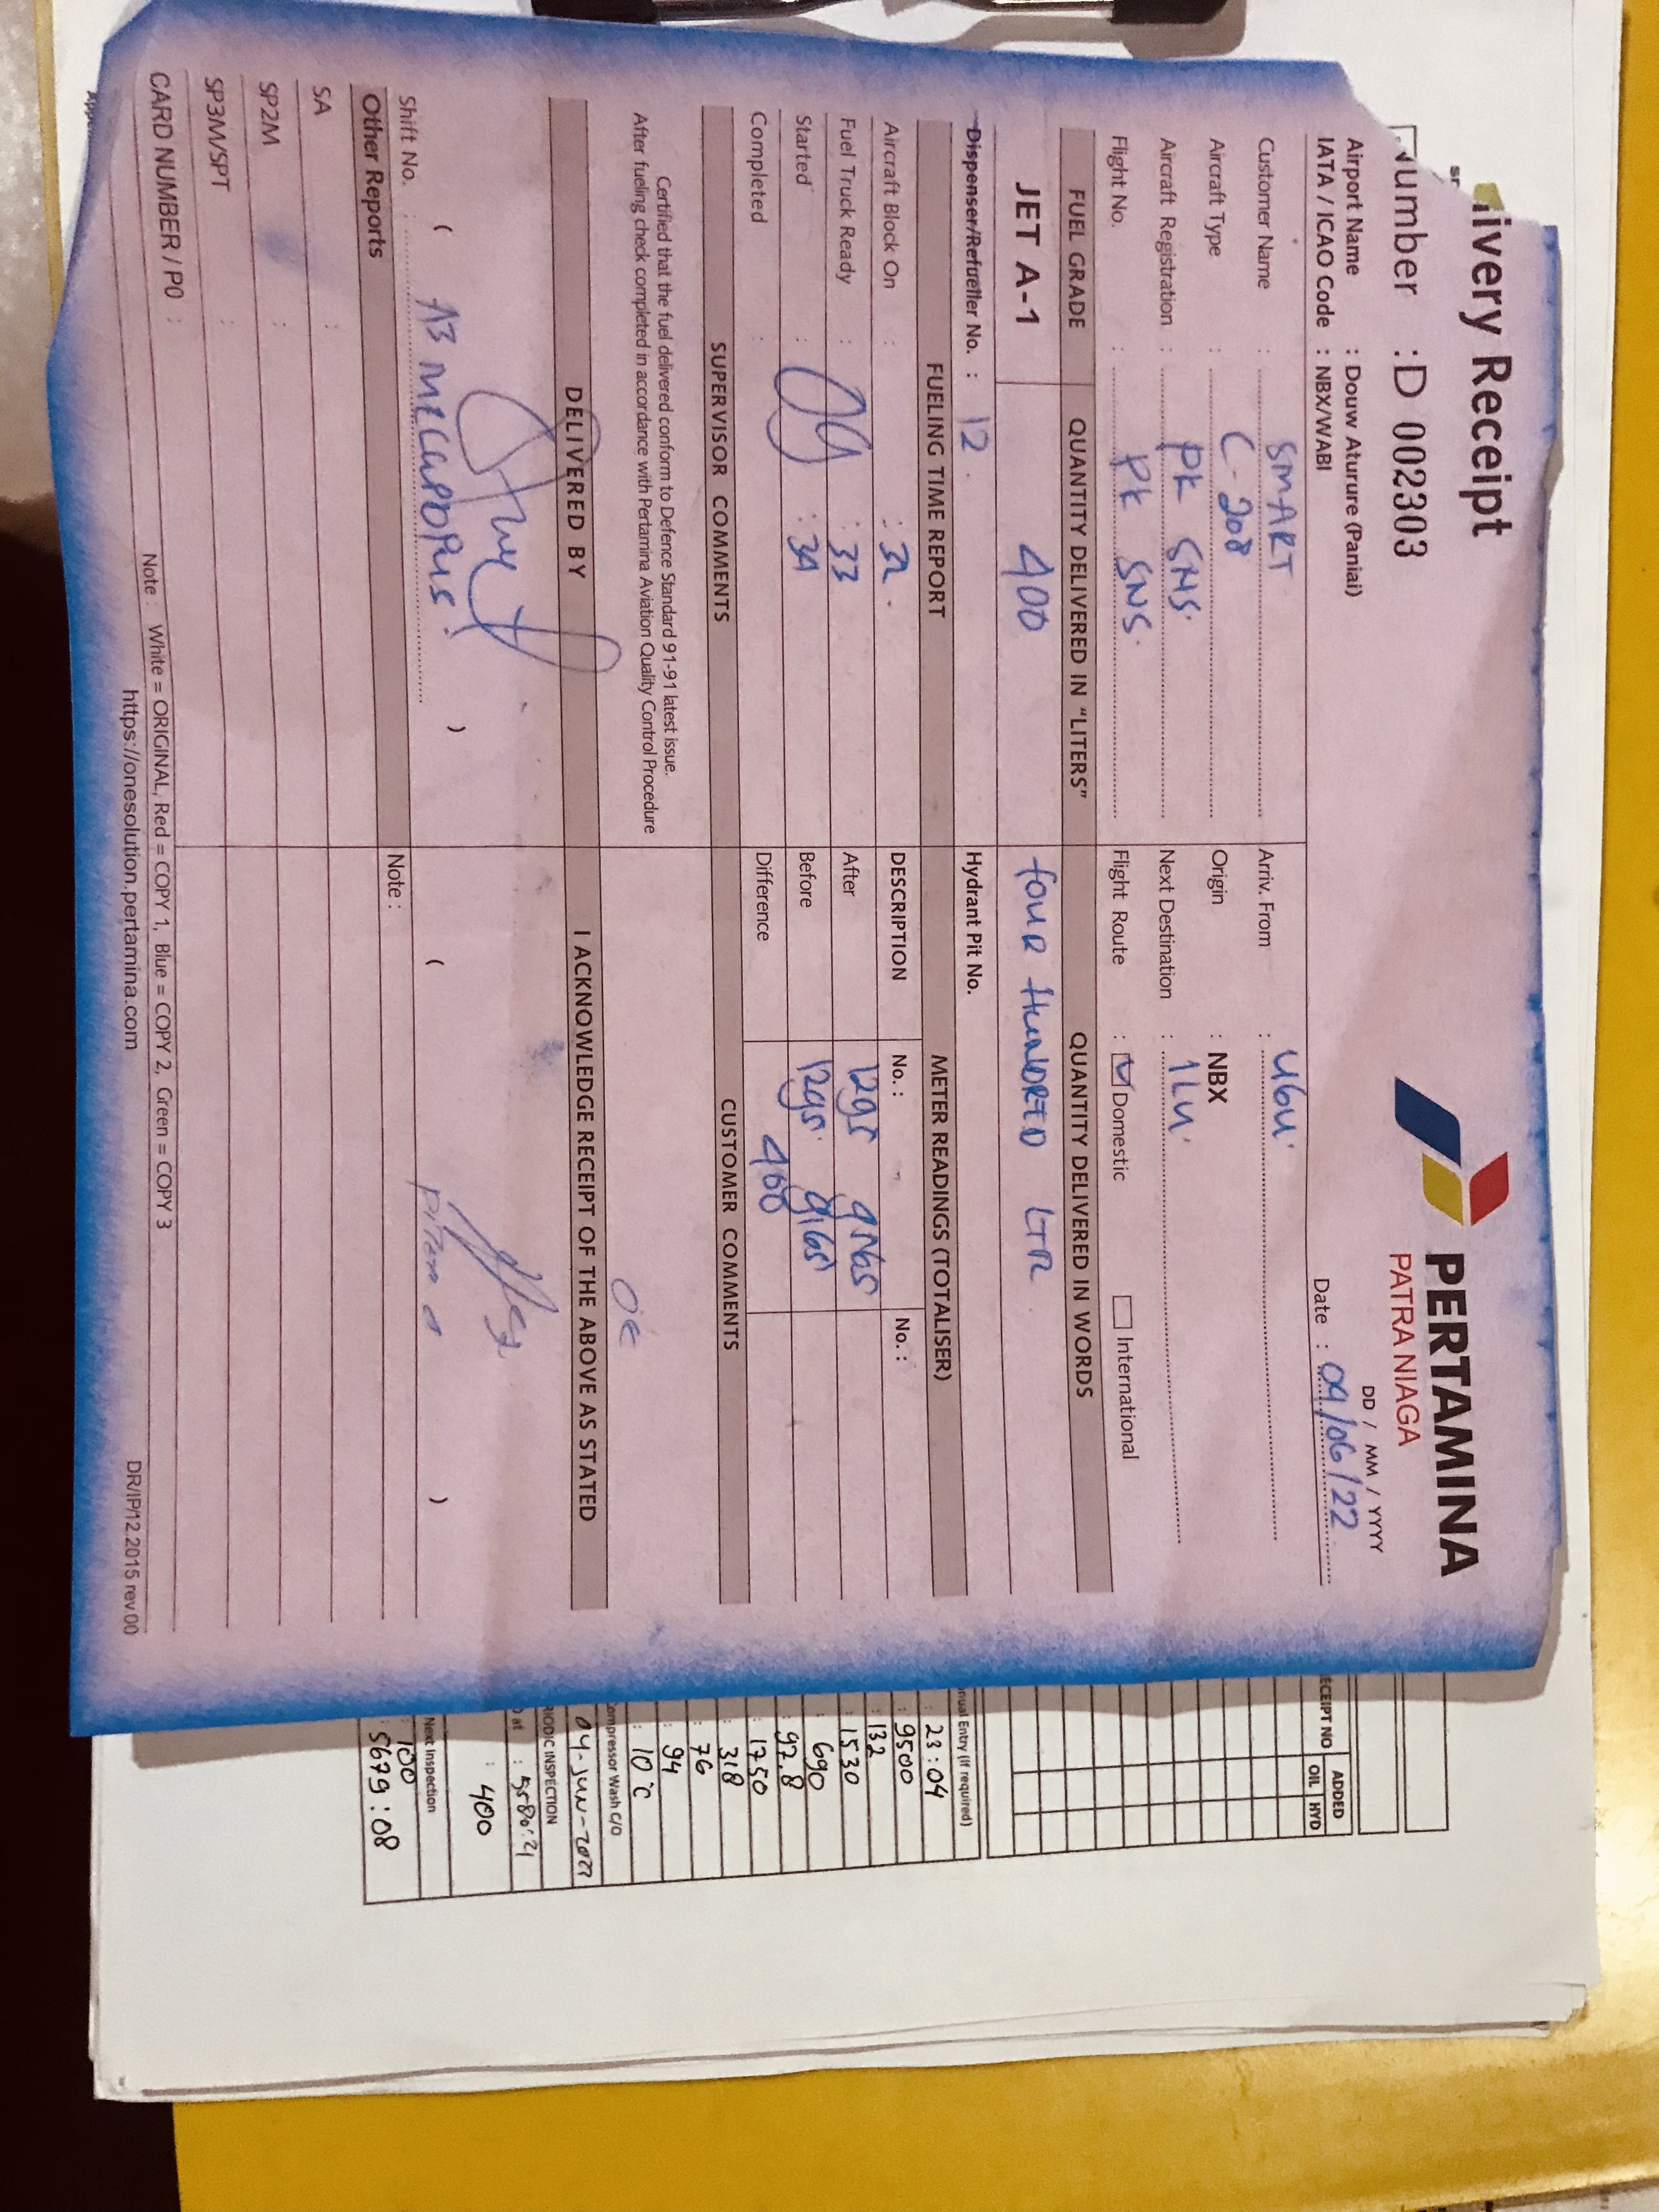 ivery Receipt
PERTAMINA
PATRA NIAGA
Number : D 002303
DD / MM / YYYY
Airport Name : Douw Aturure (Paniai)
IATA / ICAO Code : NBX/WABI
Date : 09/06/22
Customer Name : SMART
Arriv. From : UGU.
Aircraft Type : C-208
Origin : NBX
Aircraft Registration : PK SNS.
Next Destination : 1LU.
Flight No. : PK SNS.
Flight Route : Domestic International
FUEL GRADE QUANTITY DELIVERED IN "LITERS" QUANTITY DELIVERED IN WORDS
JET A-1 400 four HUNDRED LTR
Dispenser/Refueller No. : 12
Hydrant Pit No.
FUELING TIME REPORT METER READINGS (TOTALISER)
DESCRIPTION No. : No. :
Aircraft Block On : : 32.
Fuel Truck Ready : : 33
After
Started : : 34
Before
Completed :
Difference 400
SUPERVISOR COMMENTS CUSTOMER COMMENTS
Certified that the fuel delivered conform to Defence Standard 91-91 latest issue.
After fueling check completed in accordance with Pertamina Aviation Quality Control Procedure
DELIVERED BY I ACKNOWLEDGE RECEIPT OF THE ABOVE AS STATED
Shift No. ( )
( )
Other Reports Note :
SA :
SP2M :
SP3M/SPT :
CARD NUMBER / PO :
Note : White = ORIGINAL, Red = COPY 1, Blue = COPY 2, Green = COPY 3
https://onesolution.pertamina.com
DR/IP/12.2015 rev.00
ECEIPT NO ADDED
OIL HYD
nual Entry (If required)
: 23:04
: 9500
: 132
: 1530
: 690
: 92.8
: 1750
: 318
: 76
: 94
: 10°C
ompressor Wash C/O
04-JUN-2022
RIODIC INSPECTION
at :
: 400
Next Inspection
: 100
: 5679:08